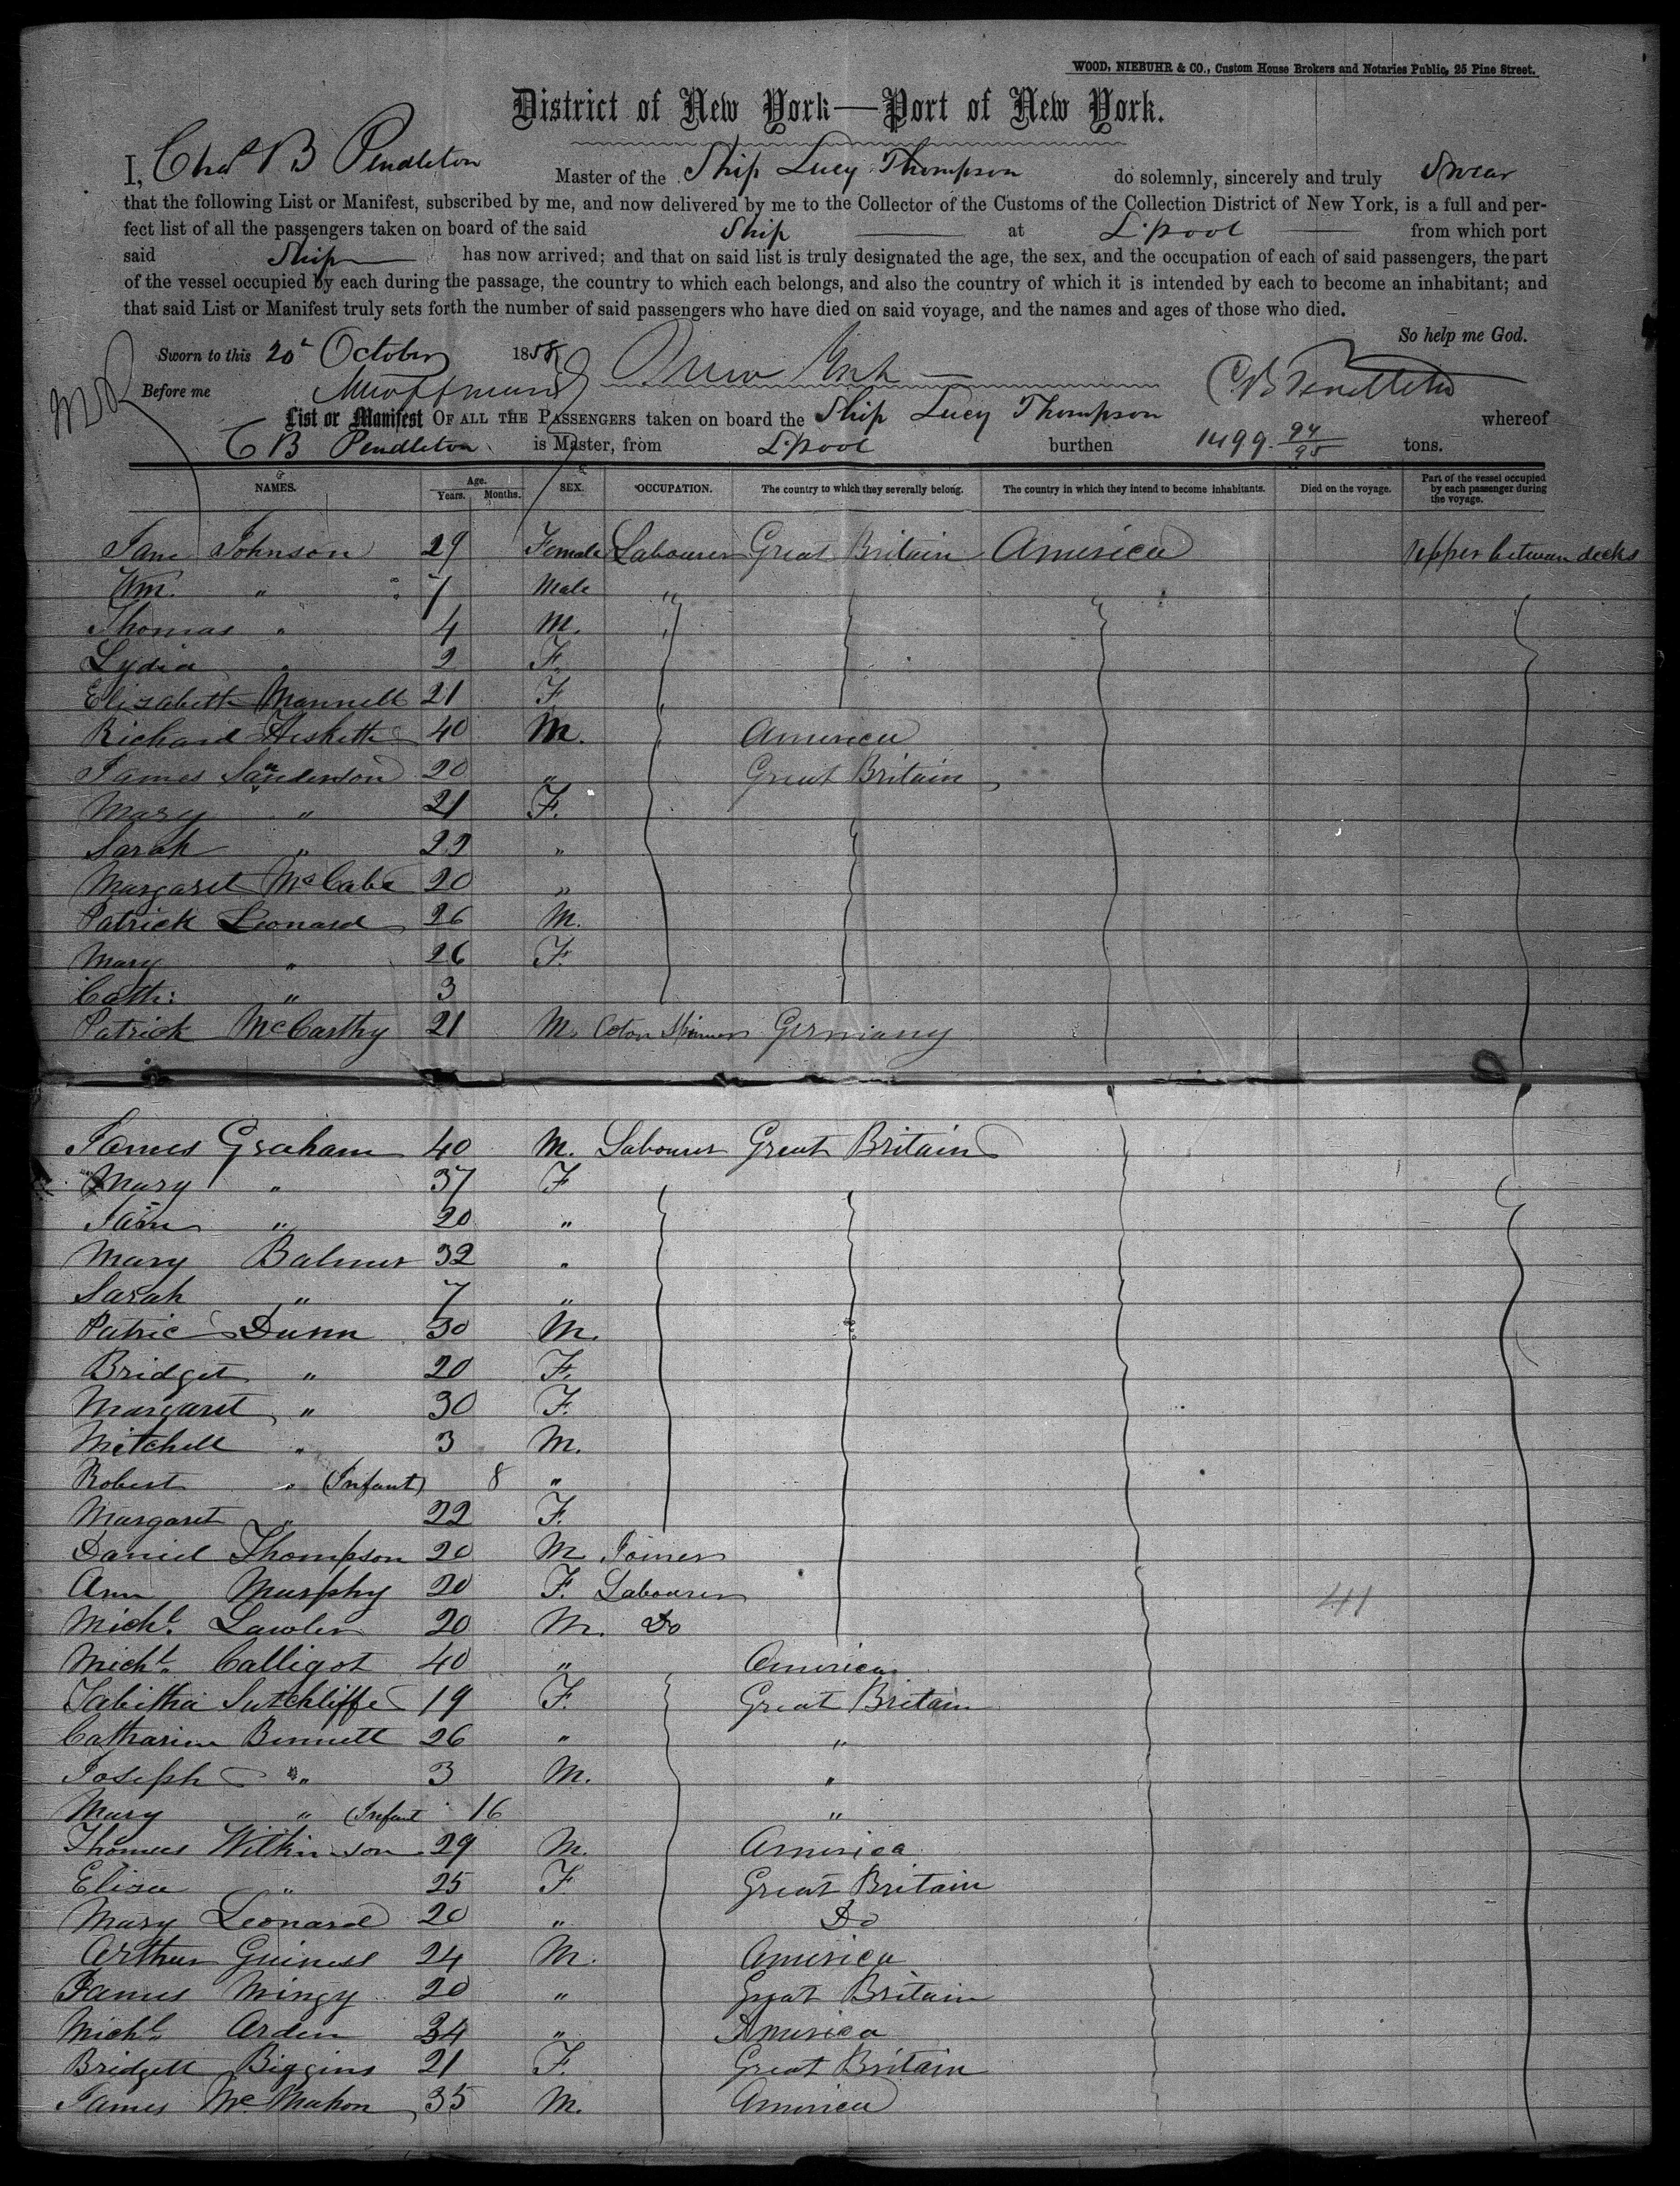 WOOD, NIEBUHR & CO., Custom House Brokers and Notaries Public, 25 Pine Street.
District of New York—Port of New York.
I, Chas B Pendleton Master of the Ship Lucy Thompson do solemnly, sincerely and truly Swear
that the following List or Manifest, subscribed by me, and now delivered by me to the Collector of the Customs of the Collection District of New York, is a full and per-
fect list of all the passengers taken on board of the said Ship at L'pool from which port
said Ship has now arrived; and that on said list is truly designated the age, the sex, and the occupation of each of said passengers, the part
of the vessel occupied by each during the passage, the country to which each belongs, and also the country of which it is intended by each to become an inhabitant; and
that said List or Manifest truly sets forth the number of said passengers who have died on said voyage, and the names and ages of those who died.
So help me God.
Sworn to this 20 October 1858
Before me C B Pendleton
List or Manifest OF ALL THE PASSENGERS taken on board the Ship Lucy Thompson whereof
C B Pendleton is Master, from L'pool burthen 1499 94/95 tons.
NAMES. Age. Years. Months. SEX. OCCUPATION. The country to which they severally belong. The country in which they intend to become inhabitants. Died on the voyage. Part of the vessel occupied by each passenger during the voyage.
Jane Johnson 29 Female Labourer Great Britain America Upper between decks
Wm. " 7 Male "
Thomas " 4 M. "
Lydia " 2 F.
Elizabeth Mannell 21 F
Richard Hesketh 40 M. America
James Sanderson 20 " Great Britain
Mary " 21 F.
Sarah " 22 "
Margaret McCabe 20 "
Patrick Leonard 26 M.
Mary " 26 F.
Cath: " 3
Patrick McCarthy 21 M. Coton Spinner Germany
James Graham 40 M. Labourer Great Britain
Mary " 37 F
Jane " 20 "
Mary Balmer 32 "
Sarah " 7 "
Patric Dunn 30 M.
Bridget " 20 F.
Margaret " 30 F.
Mitchell " 3 M.
Robert " (Infant) 8 "
Margaret " 22 F.
Daniel Thompson 20 M Joiner
Ann Murphy 20 F. Labourer 41
Michl. Lawler 20 M. Do
Michl. Calligot 40 " America
Tabitha Sutchliffe 19 F. Great Britain
Catharine Bennett 26 " "
Joseph " 3 M. "
Mary " (Infant 16 "
Thomas Wilkinson 29 M. America
Eliza " 25 F. Great Britain
Mary Leonard 20 " Do
Arthur Guiness 24 M. America
James Mingy 20 " Great Britain
Michl. Arden 34 " America
Bridgett Biggins 21 F. Great Britain
James McMahon 35 M. America